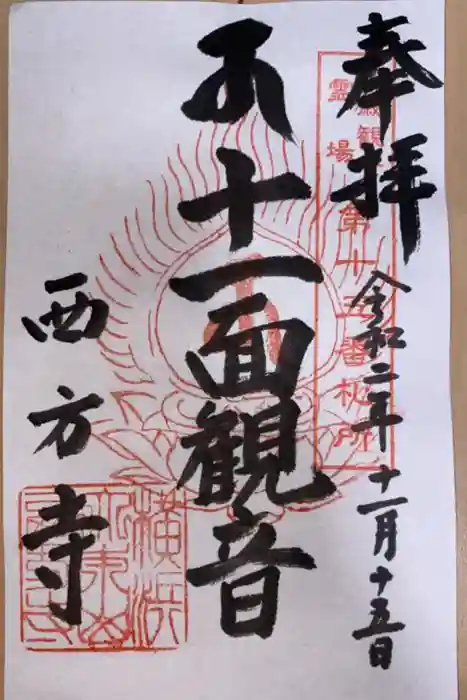 奉拝
霊場
第十五番札所
令和二年十一月十五日
十一面観音
西方寺
横浜